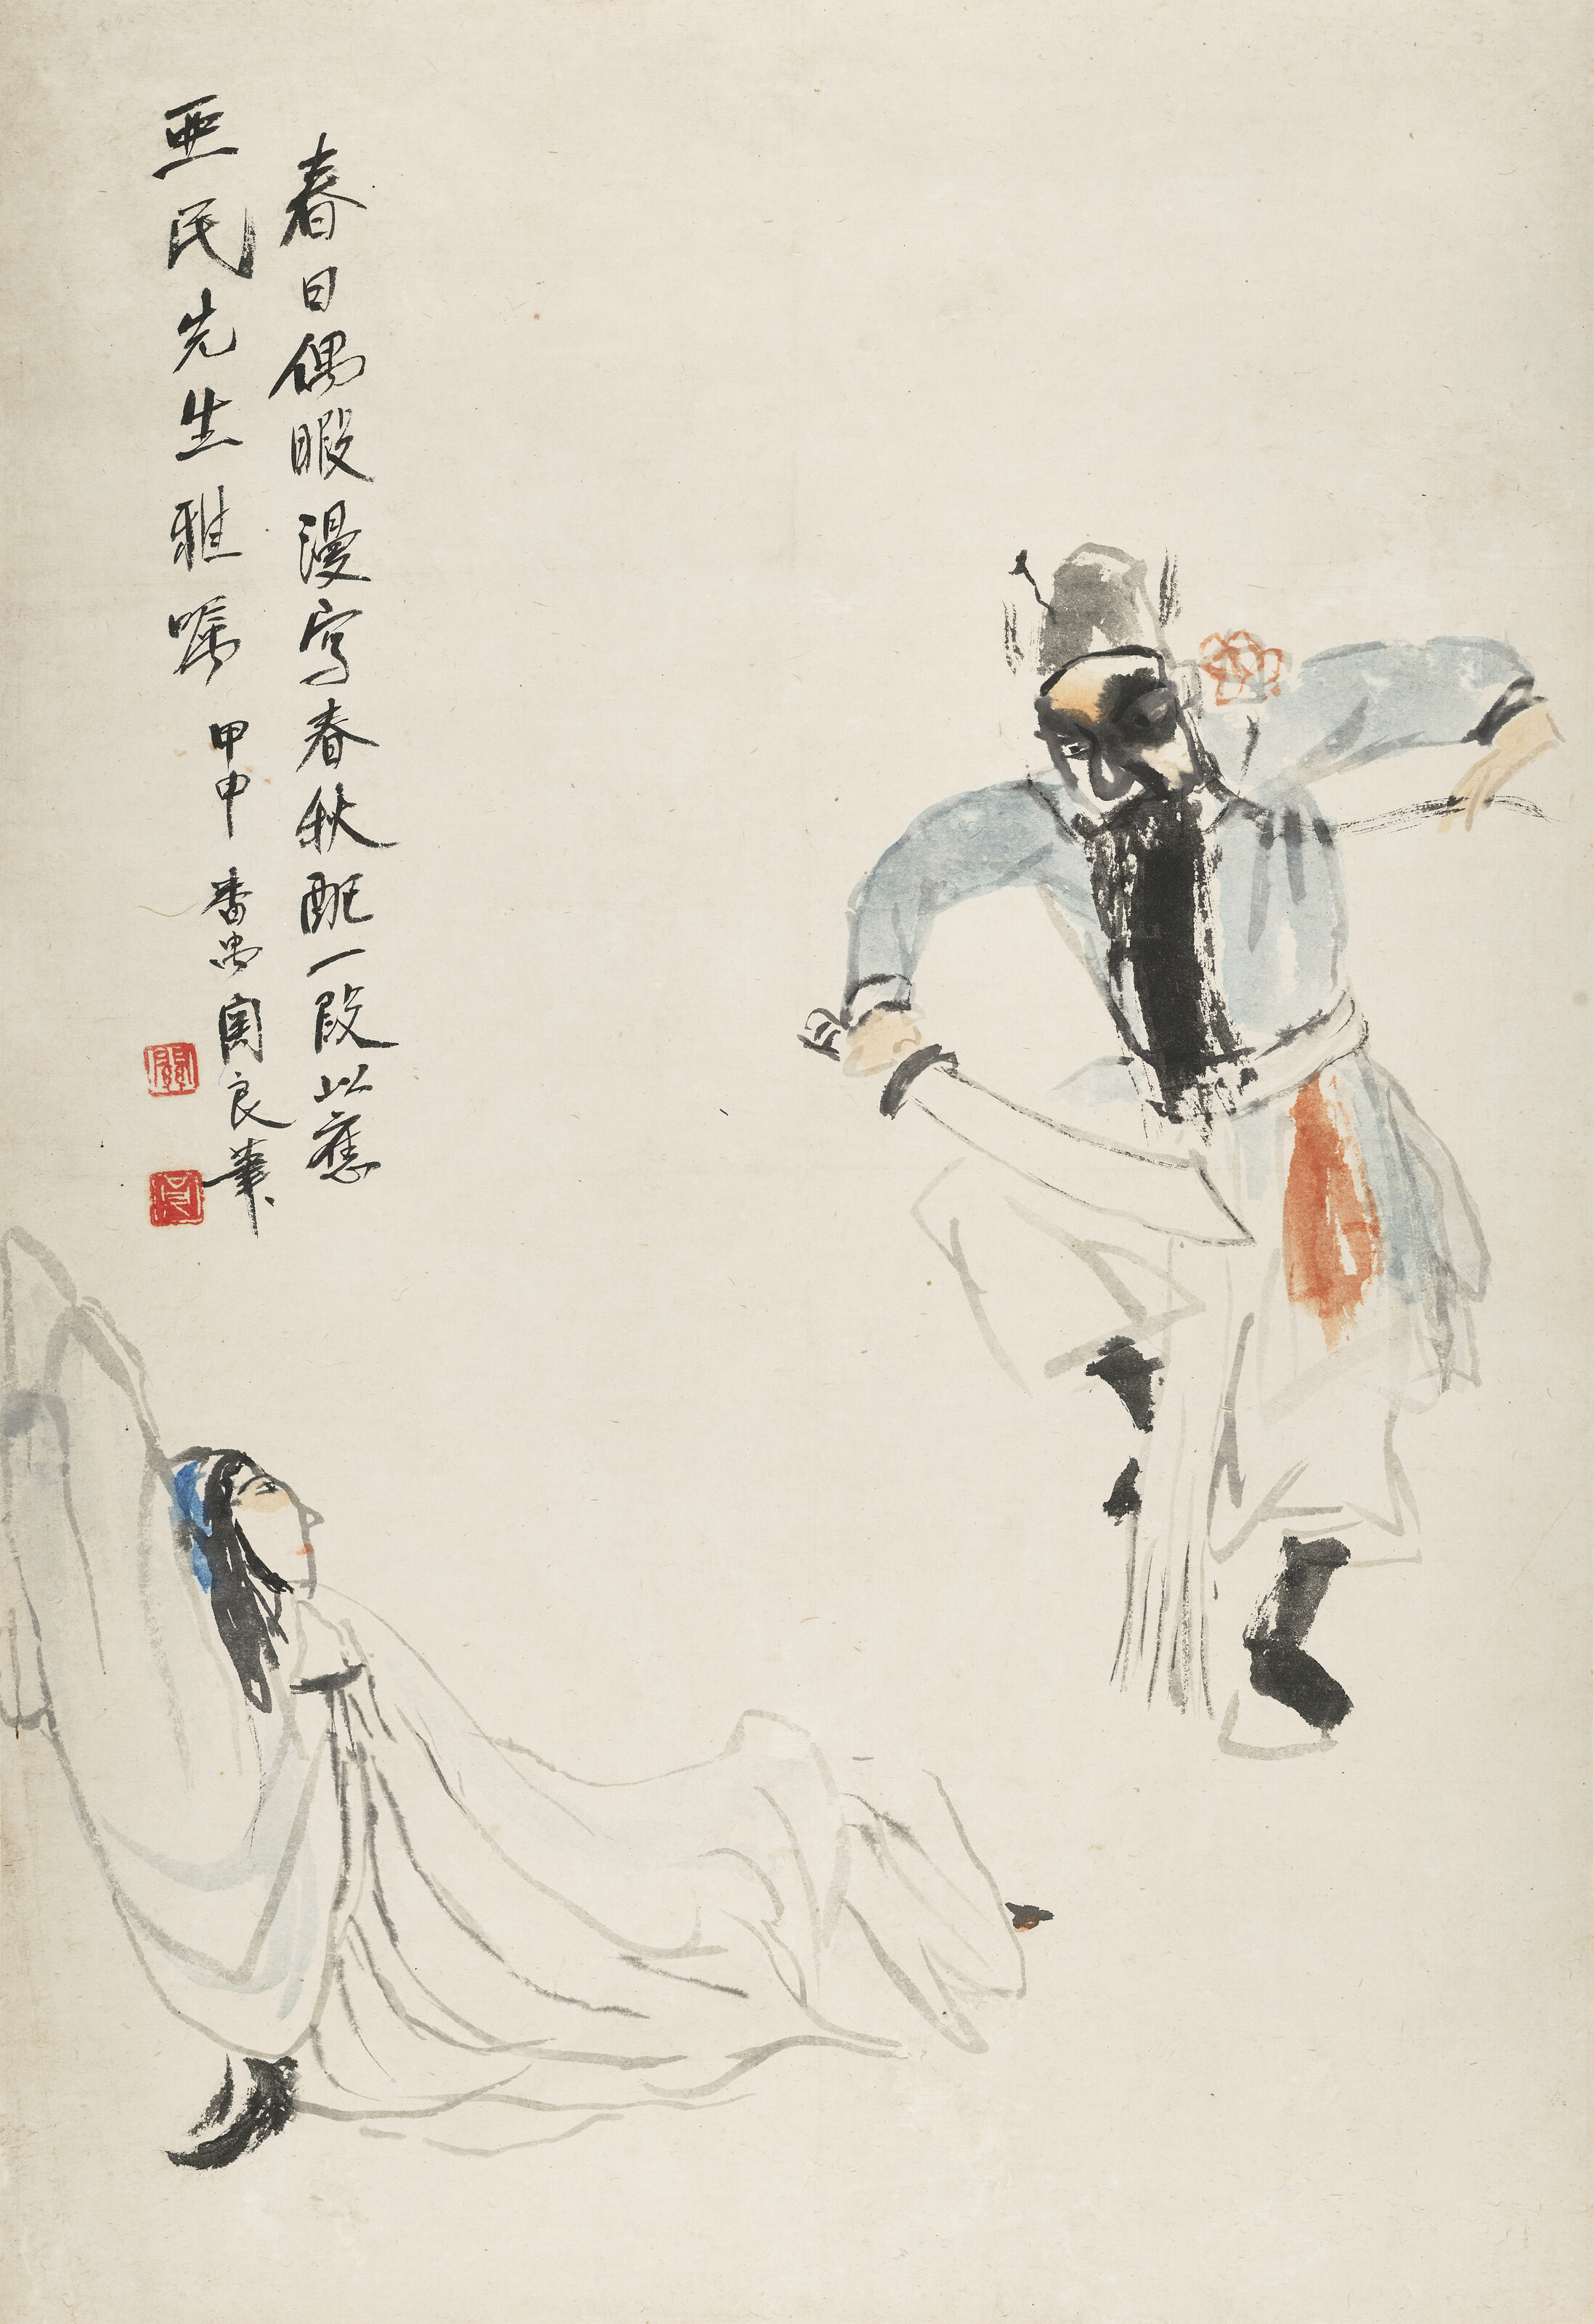 春日偶暇漫寫春秋配一段以應
亞民先生雅嘱
甲申番禺関良筆
關
良